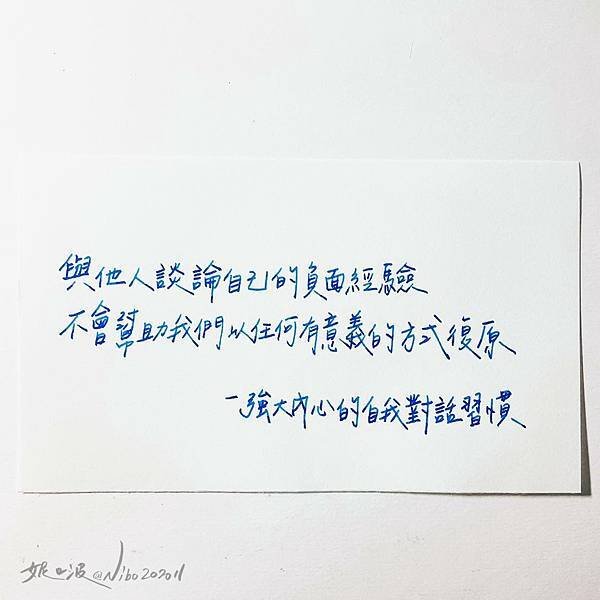 與他人談論自己的負面經驗
不會幫助我們以任何有意義的方式復原
－強大內心的自我對話習慣
妮口波@Nibo202011